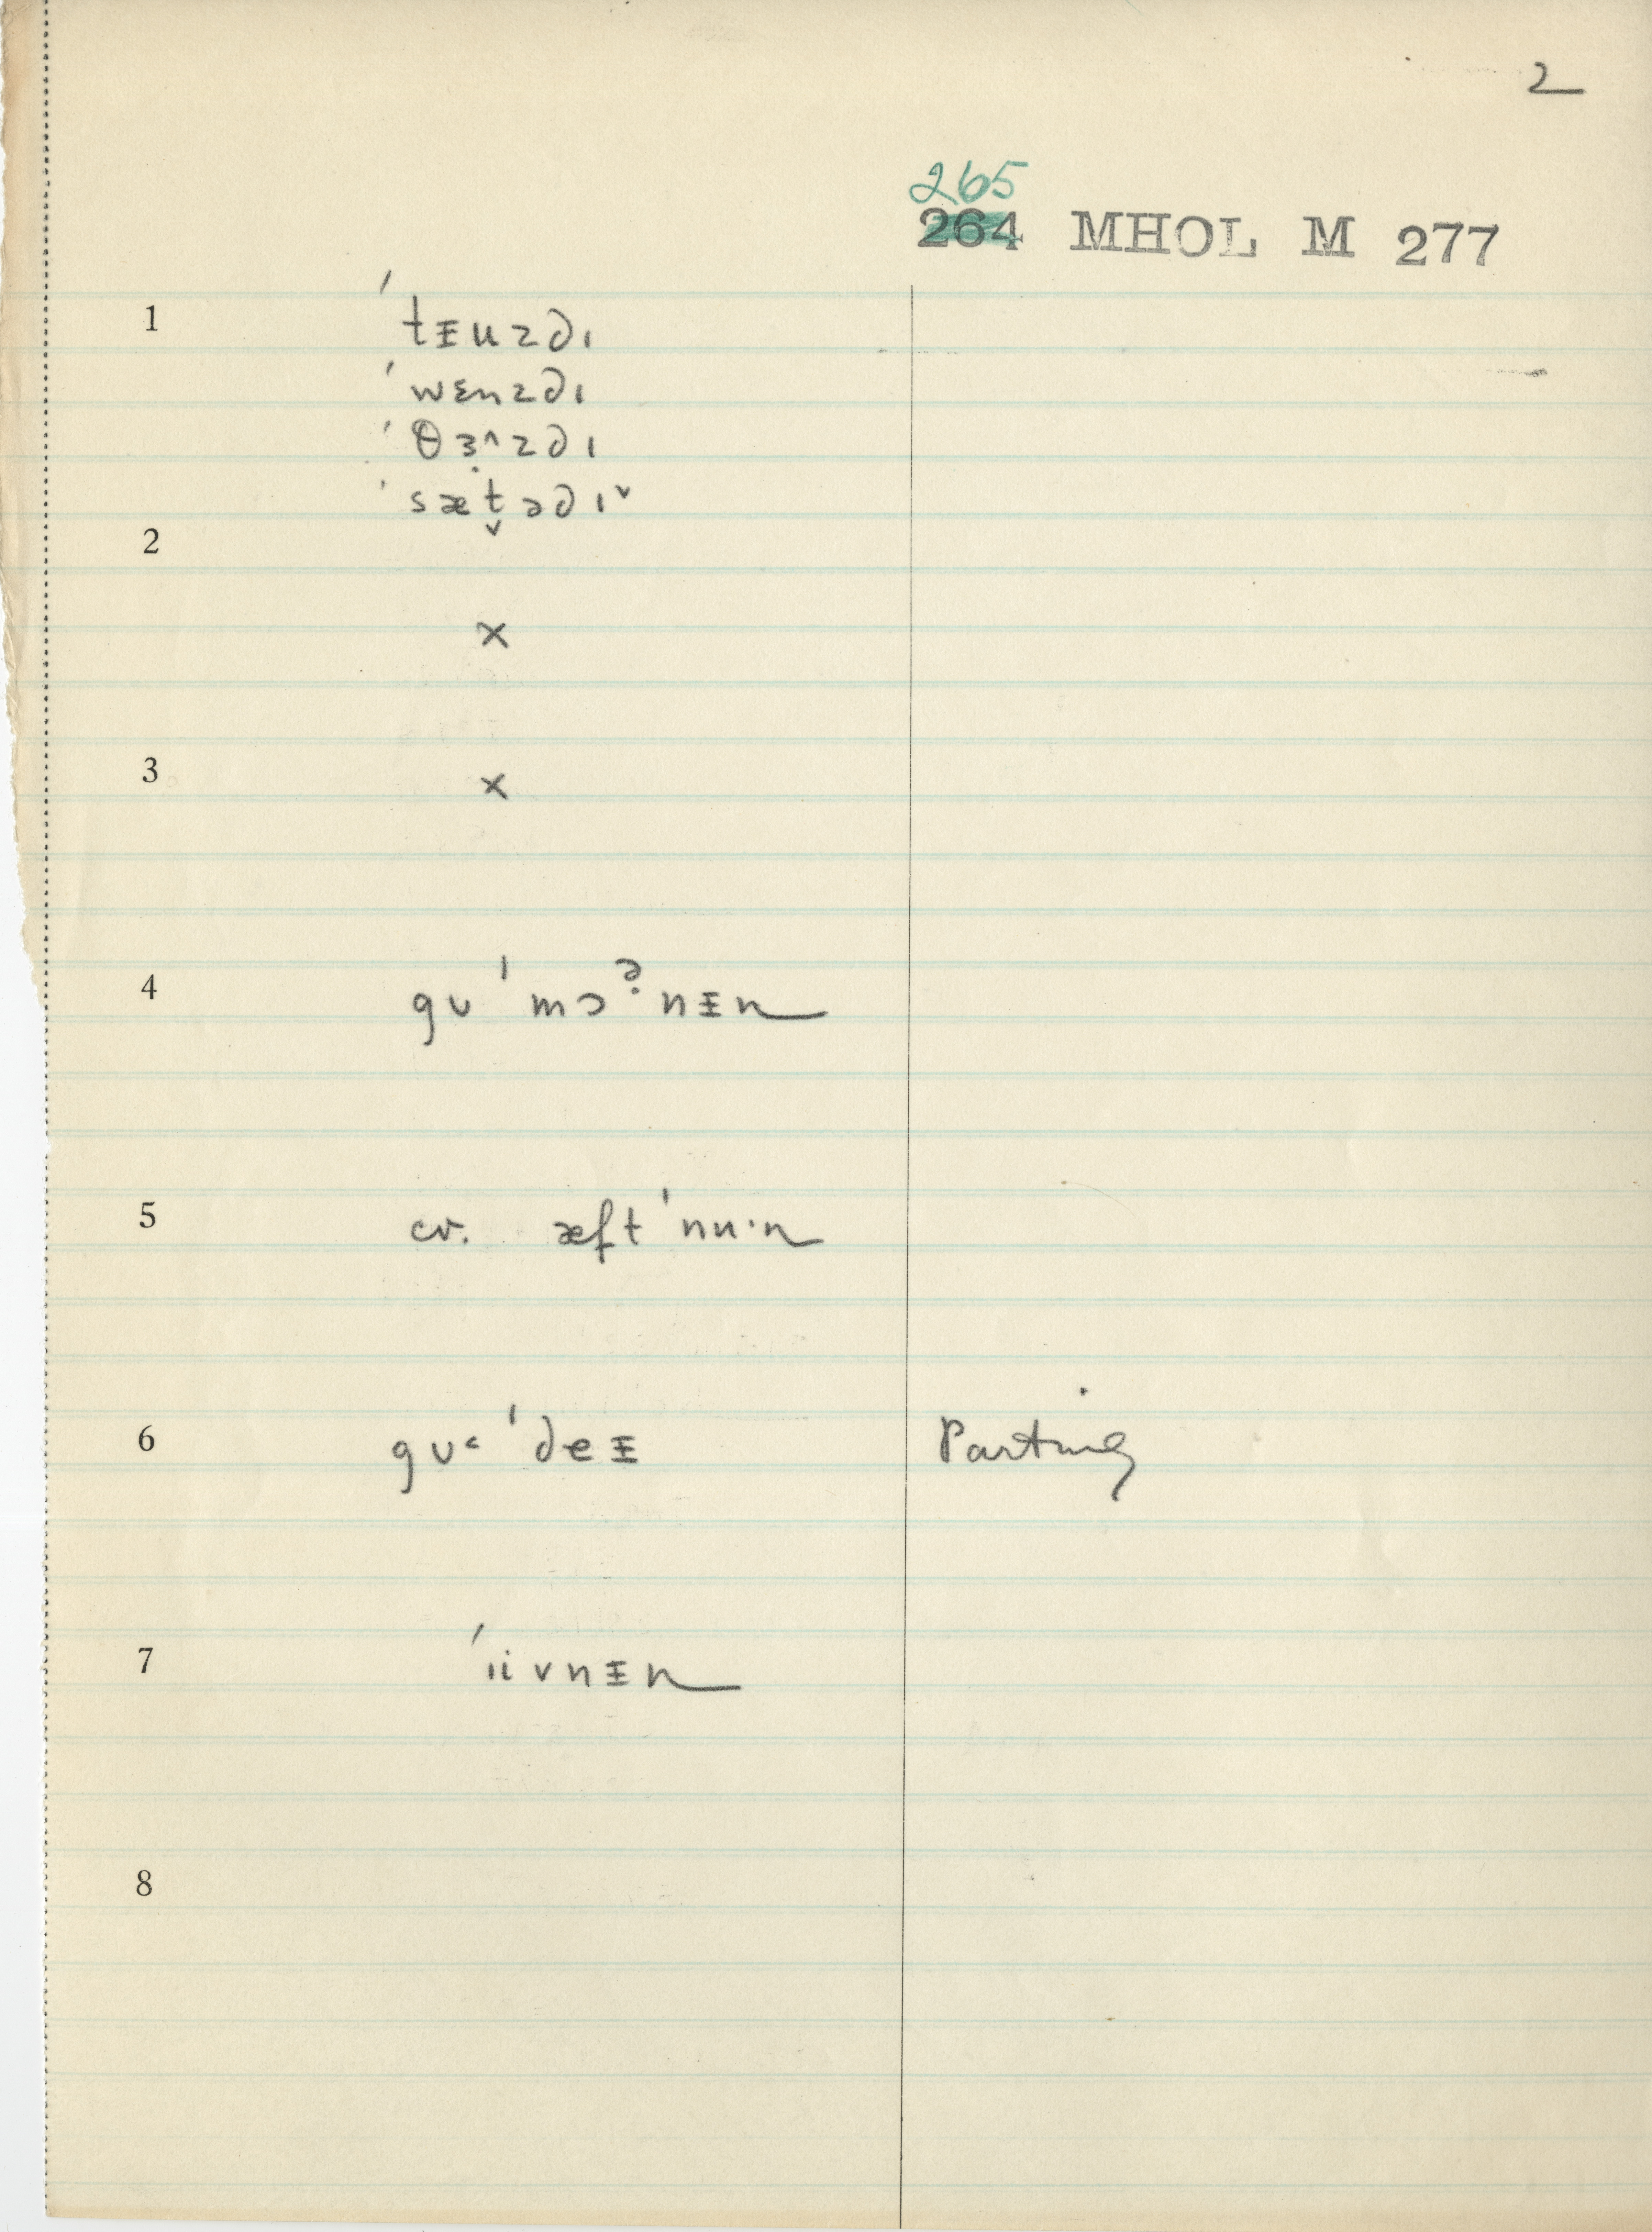 2
265
264 MHOL M 277
1 ˈtᵻuzdɪ
ˈwɛnzdɪ
ˈθɜ̣^zdɪ
ˈsæt̬ədɪˇ
2
×
3 ×
4 gʊ ˈmɔə̣nᵻn
5 cv. æftˈnuˑn
6 gʊ˂ ˈdeᵻ Parting
7 ˈɪivnᵻn
8